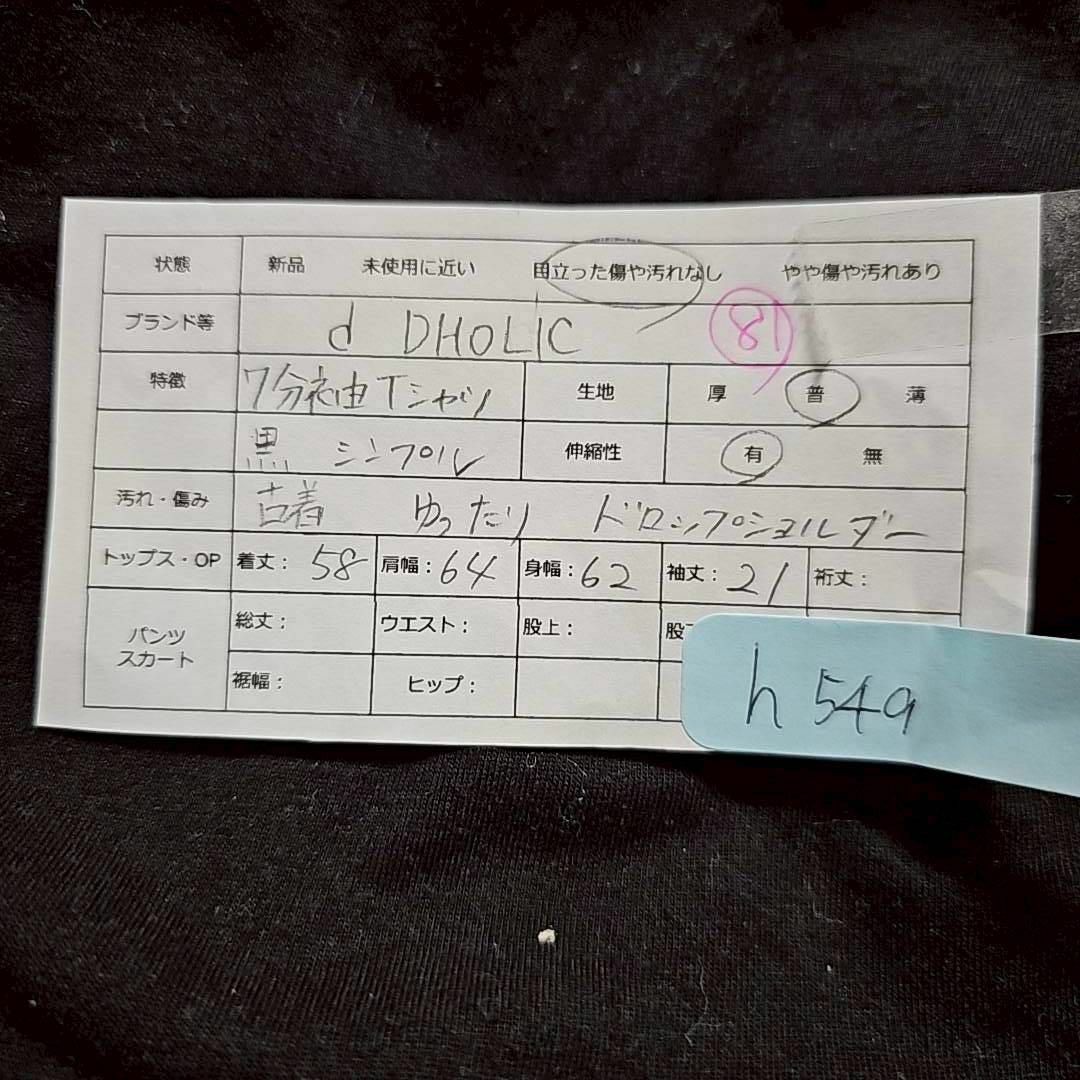 状態 新品 未使用に近い 目立った傷や汚れなし やや傷や汚れあり
ブランド等 d DHOLIC 81
特徴 7分袖Tシャツ 生地 厚 普 薄
黒 シンプル 伸縮性 有 無
汚れ・傷み 古着 ゆったり ドロップショルダー
トップス・OP 着丈: 58 肩幅: 64 身幅: 62 袖丈: 21 裄丈:
パンツ
スカート
総丈: ウエスト: 股上:
裾幅: ヒップ:
h549